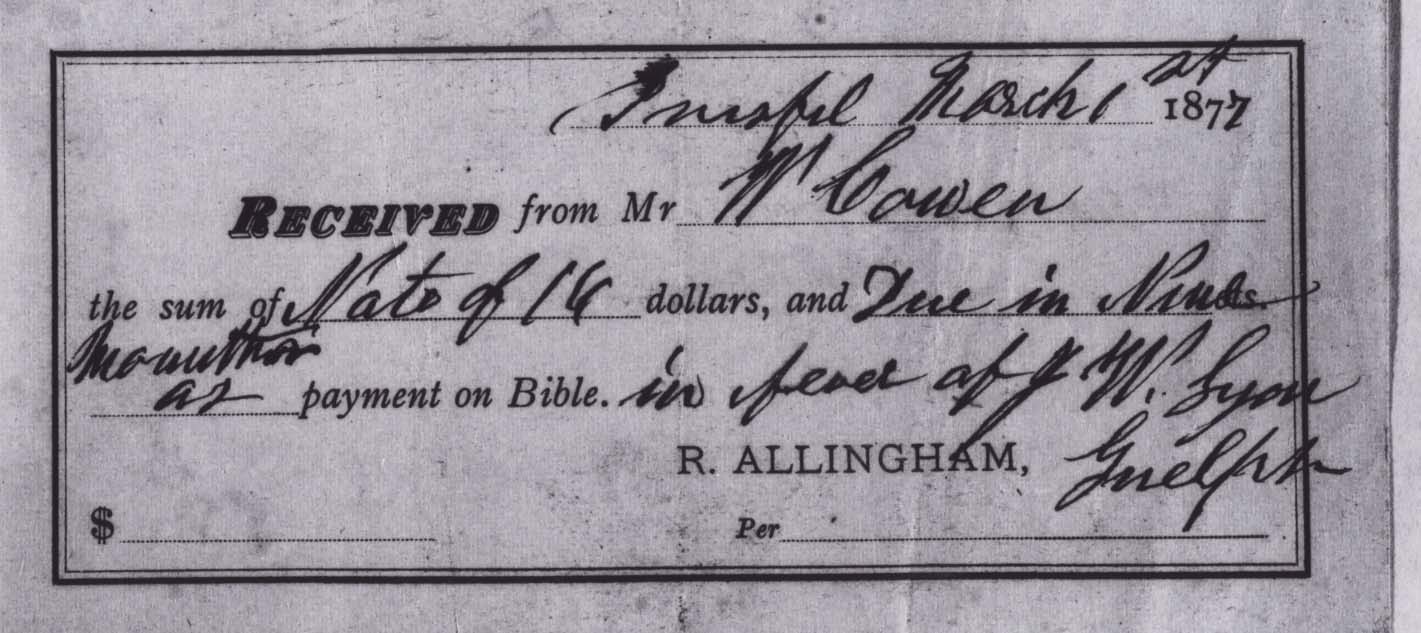 Innisfil March 1st 1877
RECEIVED from Mr W Cowen
the sum of Note of 16 dollars, and Due in Nine cts.
Mounths
as payment on Bible. in faver of J W. Lyon
R. ALLINGHAM, Guelph
$ Per